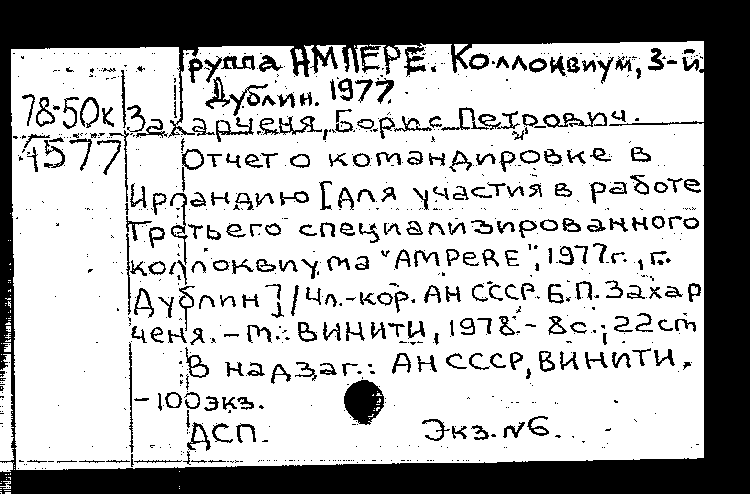 Группа АМПЕРЕ. Коллоквиум, 3-й.
Дублин. 1977.
78-50к
Захарченя, Борис Петрович.
1577
Отчет о командировке в
Ирландию [для участия в работе
Третьего специализированного
коллоквиума "AMPERE", 1977г., г.
Дублин] / Чл.-кор. АН СССР Б.П. Захар
ченя. - М.: ВИНИТИ, 1978. - 8с.; 22cm
В надзаг.: АН СССР, ВИНИТИ.
- 100экз.
ДСП. Экз. №6.